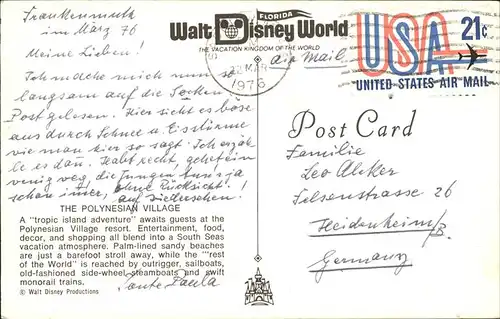 Frankenmuth
im März 76
Meine Lieben!
Ich mache mich nun so
langsam auf die Socken.
Post gelesen. Hier sieht es böse
aus durch Schnee u. Eisstürme
wie man hier so sagt. Ich erzäh
le es dan. Habt recht, geht ein
wenig weg, die Jungen tuns ja
schon immer, ohne Rücksicht.
auf Wiedersehen!
THE POLYNESIAN VILLAGE
A "tropic island adventure" awaits guests at the
Polynesian Village resort. Entertainment, food,
decor, and shopping all blend into a South Seas
vacation atmosphere. Palm-lined sandy beaches
are just a barefoot stroll away, while the "'rest
of the World" is reached by outrigger, sailboats,
old-fashioned side-wheel steamboats and swift
monorail trains.
© Walt Disney Productions
Tante Paula
FLORIDA
Walt Disney World
THE VACATION KINGDOM OF THE WORLD
Air Mail
22 MAR
1976
USA 21c
UNITED STATES AIR MAIL
Post Card
Familie
Leo
Felsenstrasse 26
Heidenheim/B.
Germany